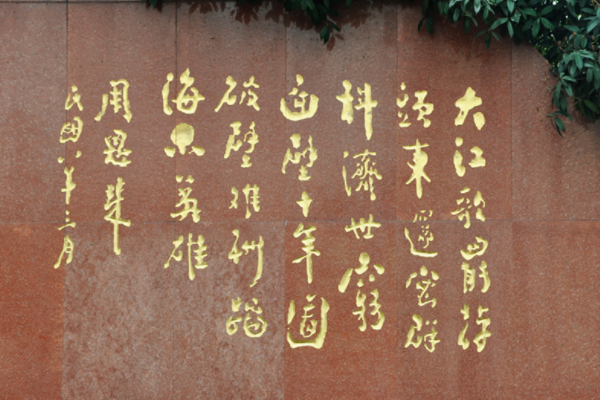 大江歌罷掉
頭東邃密群
科濟世窮
面壁十年圖
破壁难酬蹈
海亦英雄
周恩來
民國八年三月